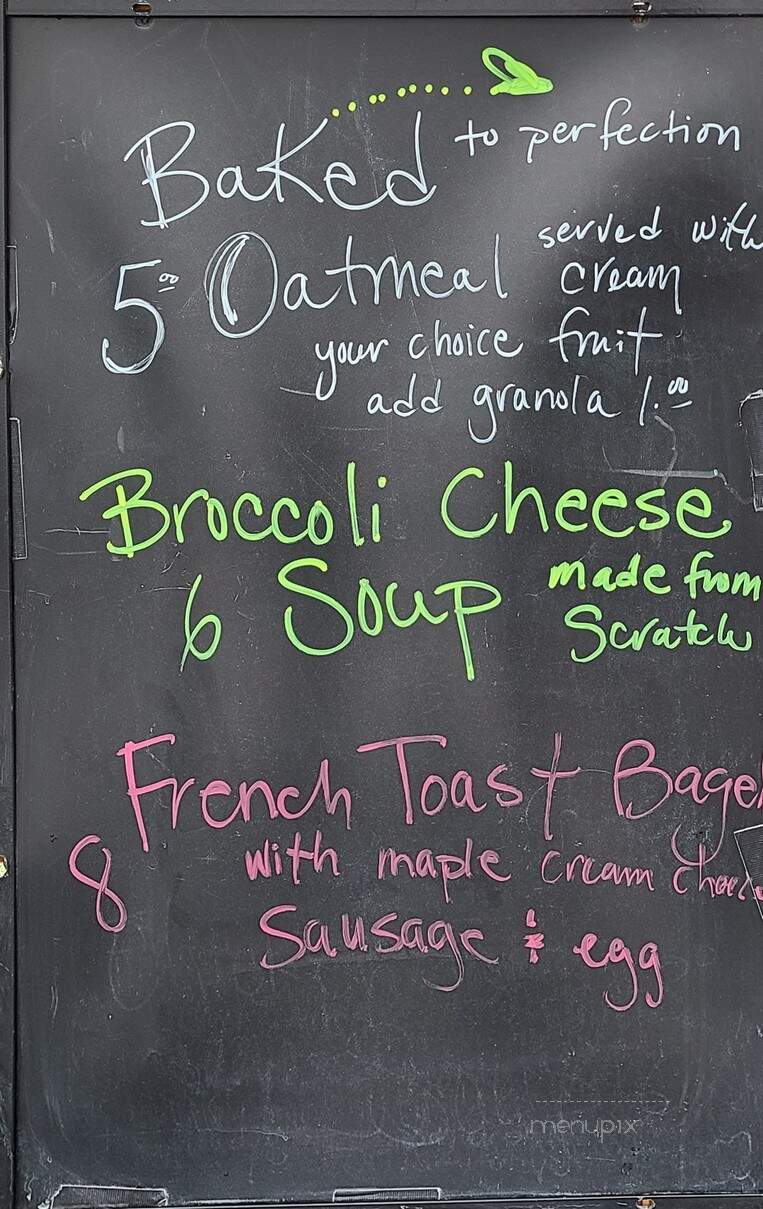 Baked to perfection
5.00 Oatmeal served with
cream
your choice fruit
add granola 1.00
Broccoli Cheese
6 Soup made from
Scratch
French Toast Bagel
8 with maple cream
Sausage & egg
menupix